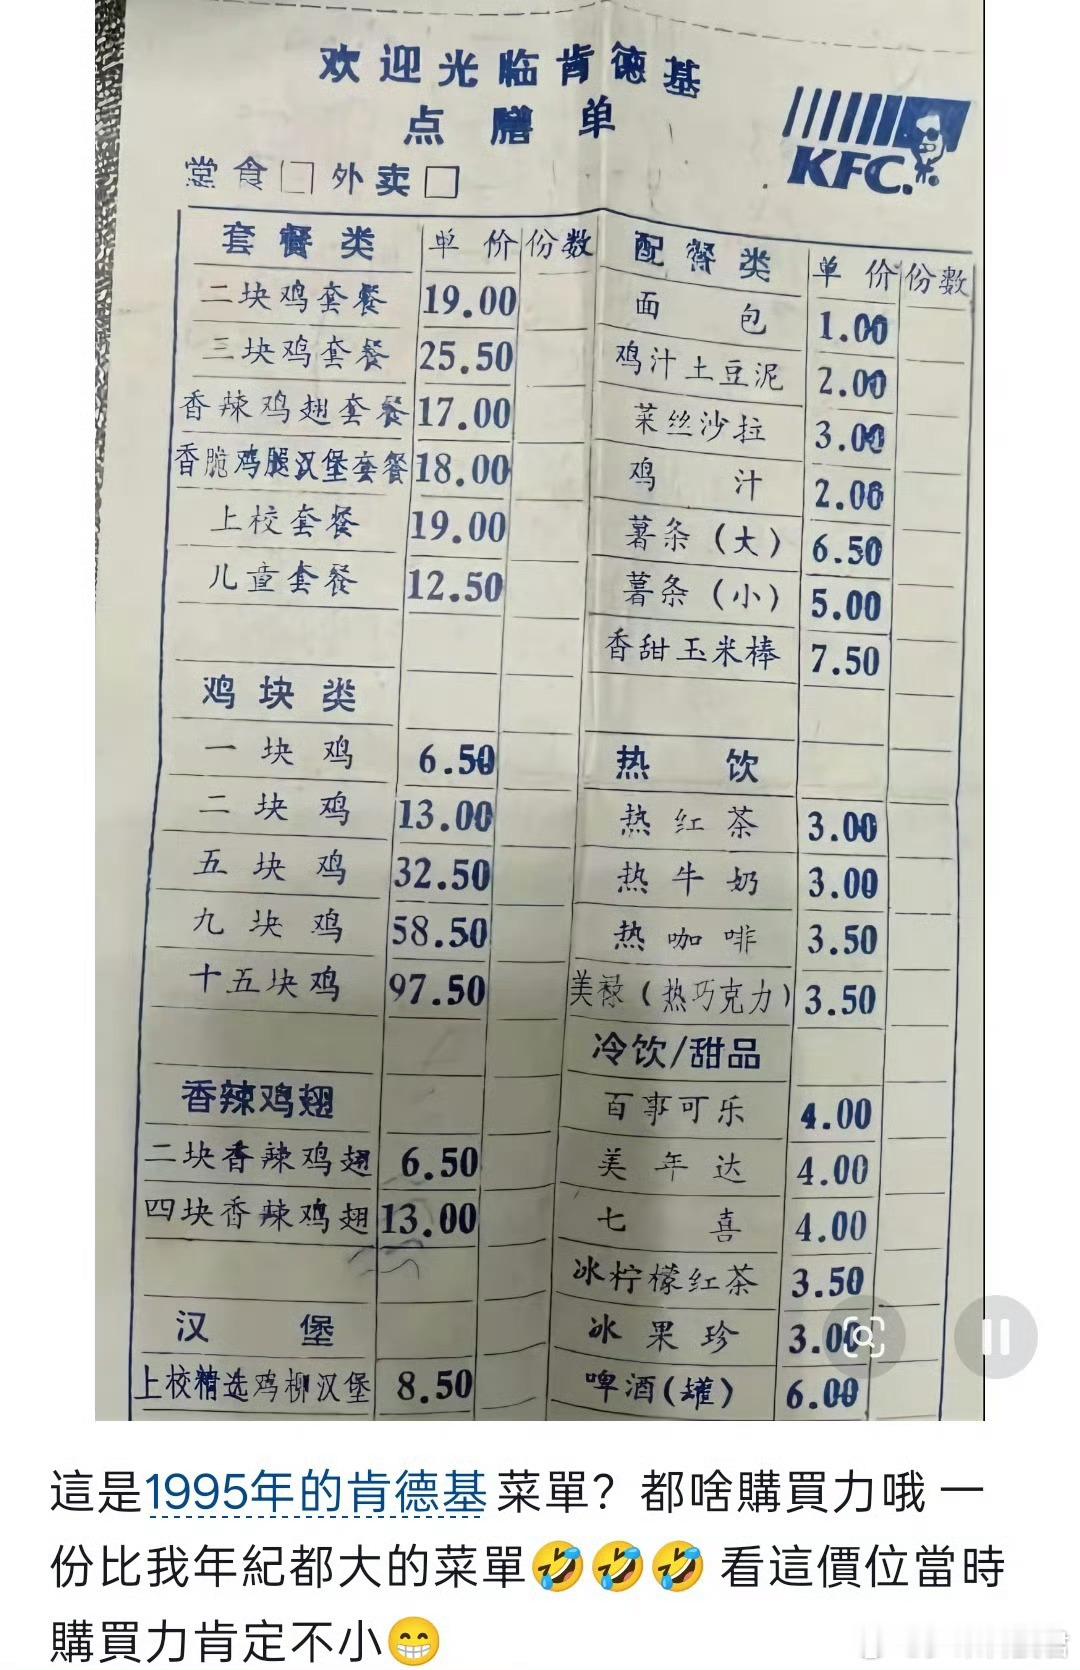 欢迎光临肯德基
点膳单
KFC.
堂食□ 外卖□
套餐类 单价 份数
二块鸡套餐 19.00
三块鸡套餐 25.50
香辣鸡翅套餐 17.00
香脆鸡腿汉堡套餐 18.00
上校套餐 19.00
儿童套餐 12.50
鸡块类
一块鸡 6.50
二块鸡 13.00
五块鸡 32.50
九块鸡 58.50
十五块鸡 97.50
香辣鸡翅
二块香辣鸡翅 6.50
四块香辣鸡翅 13.00
汉堡
上校精选鸡柳汉堡 8.50
配餐类 单价 份数
面包 1.00
鸡汁土豆泥 2.00
菜丝沙拉 3.00
鸡汁 2.00
薯条(大) 6.50
薯条(小) 5.00
香甜玉米棒 7.50
热饮
热红茶 3.00
热牛奶 3.00
热咖啡 3.50
美禄(热巧克力) 3.50
冷饮/甜品
百事可乐 4.00
美年达 4.00
七喜 4.00
冰柠檬红茶 3.50
冰果珍 3.00
啤酒(罐) 6.00
這是1995年的肯德基菜單？都啥購買力哦 一
份比我年紀都大的菜單🤣🤣🤣 看這價位當時
購買力肯定不小😁